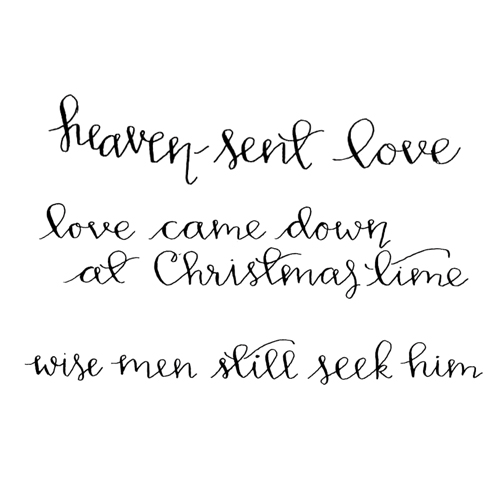 heaven-sent love
love came down
at Christmas time
wise men still seek him